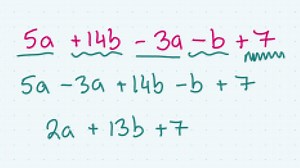 5a +14b - 3a - b + 7
5a - 3a + 14b - b + 7
2a + 13b + 7